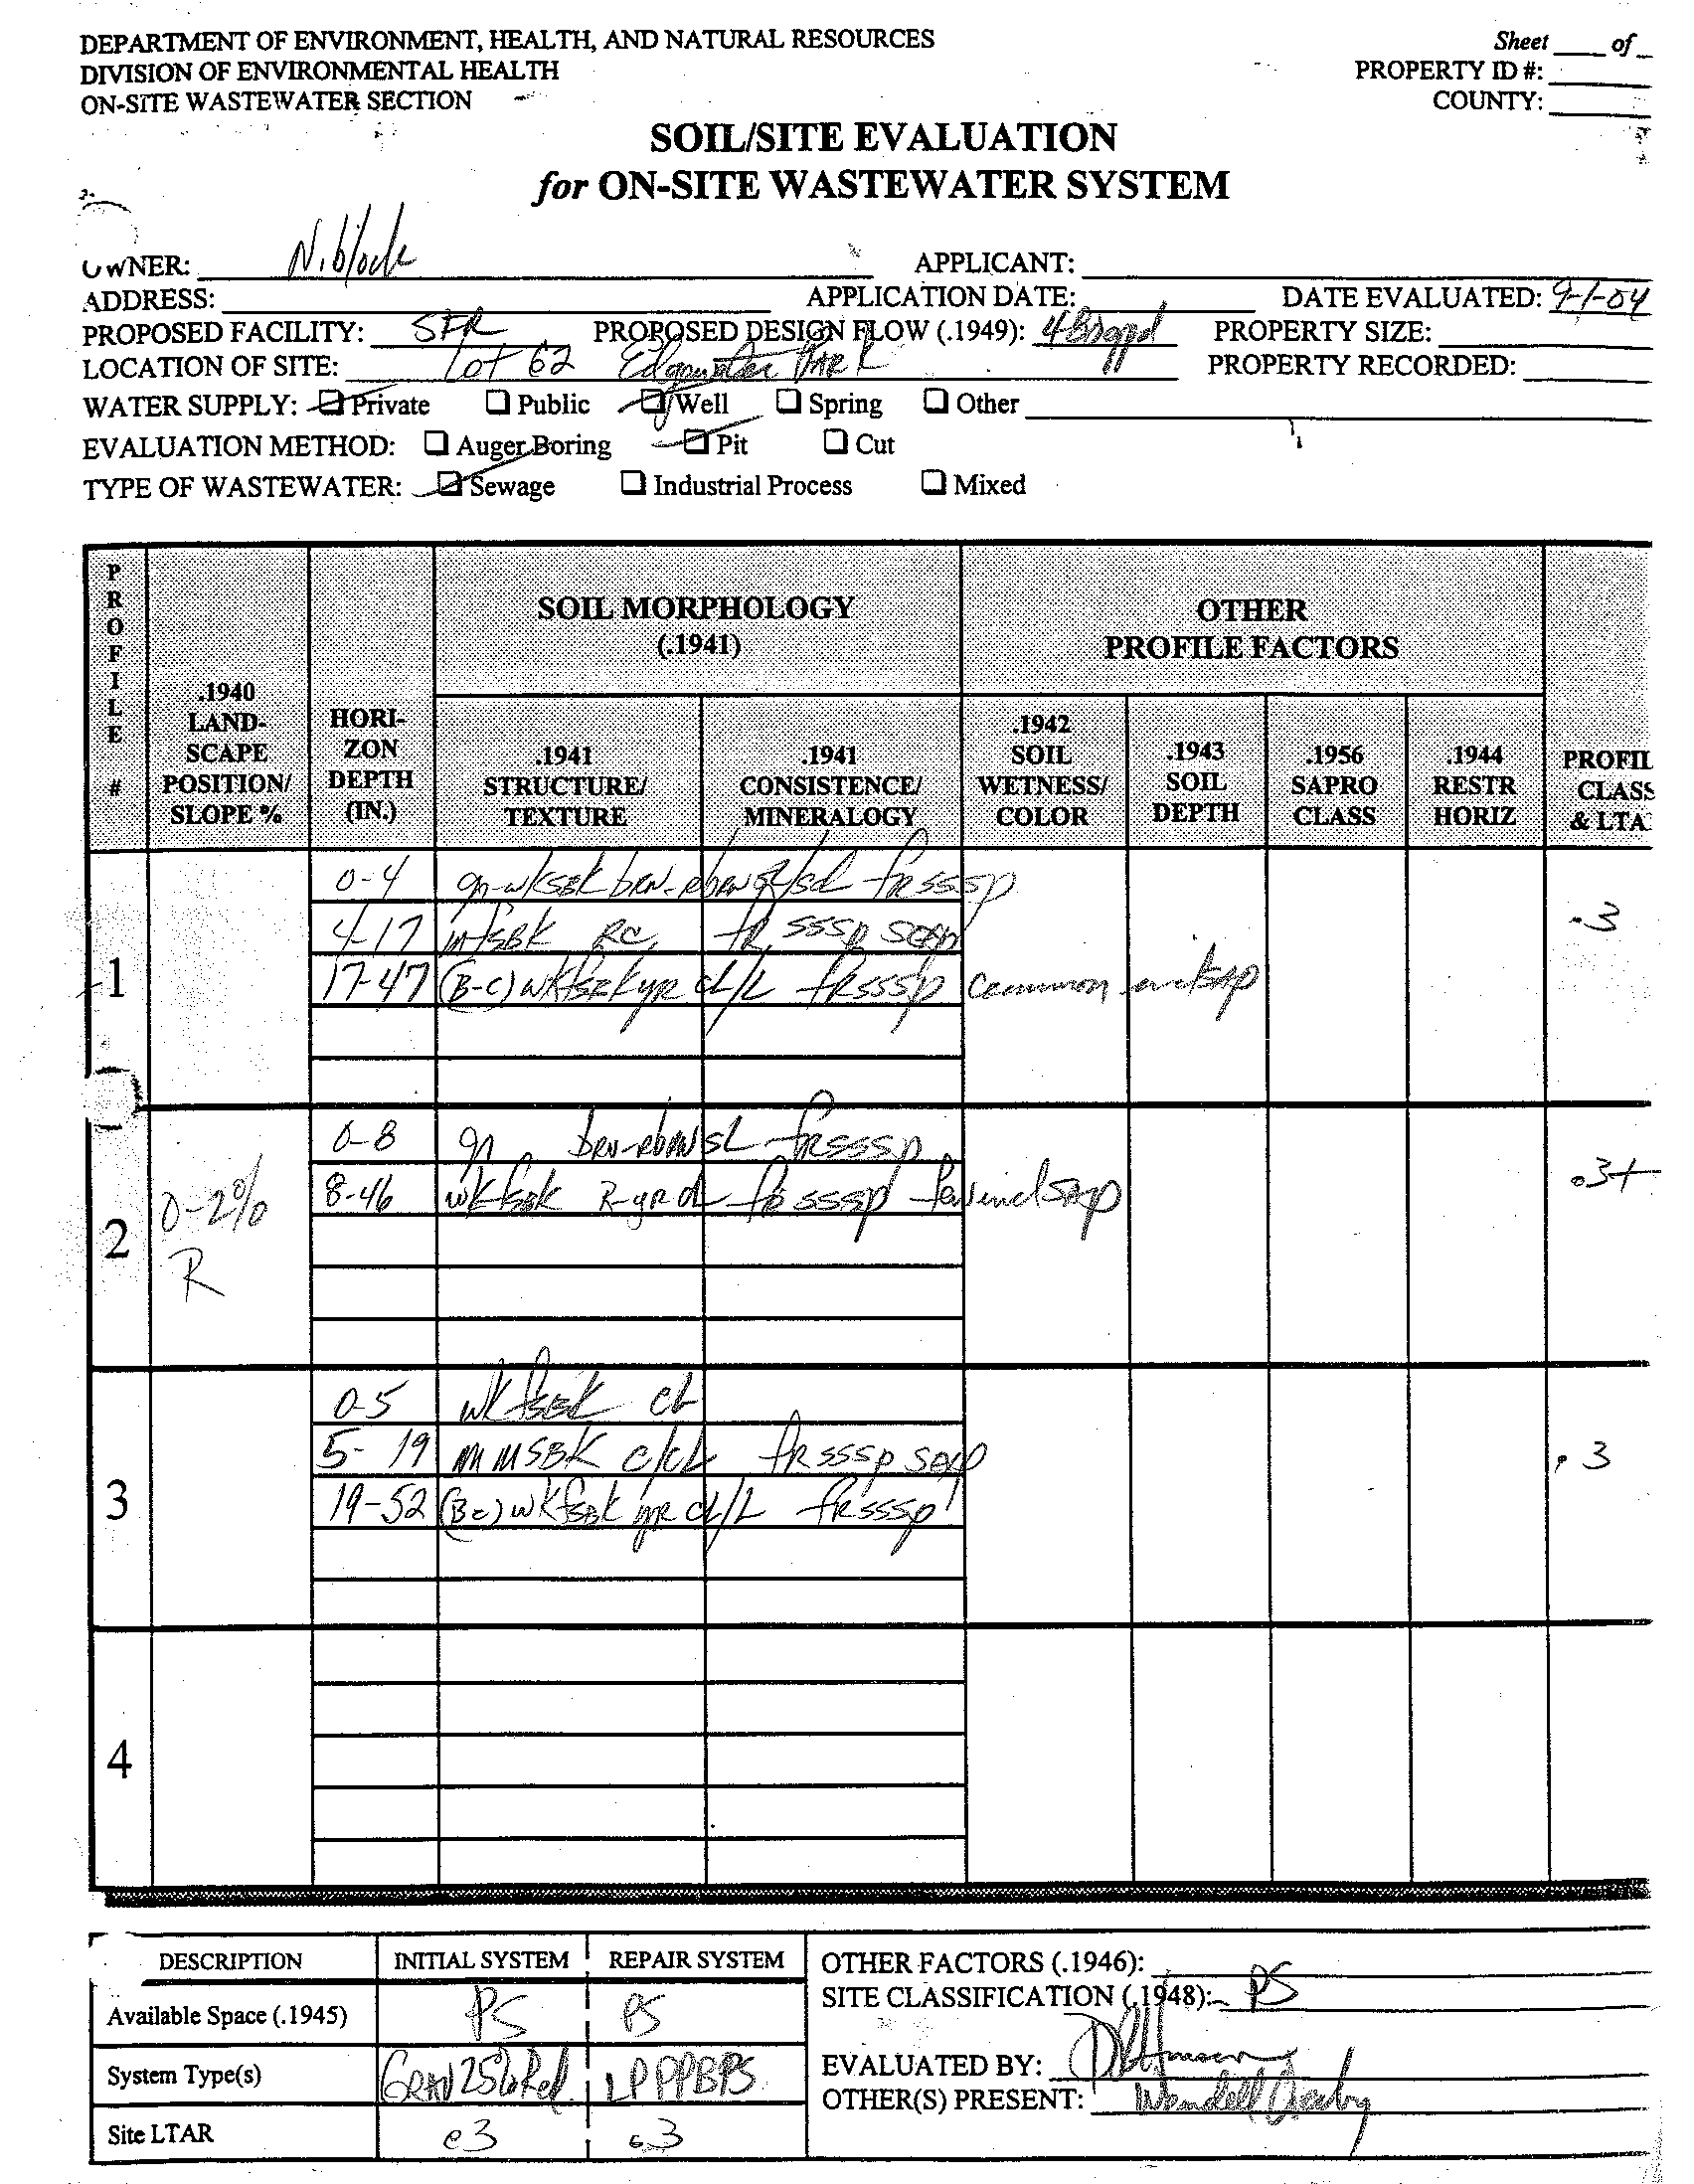 DEPARTMENT OF ENVIRONMENT, HEALTH, AND NATURAL RESOURCES
Sheet ____ of _
DIVISION OF ENVIRONMENTAL HEALTH
PROPERTY ID #:
ON-SITE WASTEWATER SECTION
COUNTY:
SOIL/SITE EVALUATION
for ON-SITE WASTEWATER SYSTEM
OWNER: Niblock APPLICANT:
ADDRESS: APPLICATION DATE: DATE EVALUATED: 9-1-04
PROPOSED FACILITY: SFR PROPOSED DESIGN FLOW (.1949): PROPERTY SIZE:
LOCATION OF SITE: Lot 62 Edgewater PARK PROPERTY RECORDED:
WATER SUPPLY: Private Public Well Spring Other
EVALUATION METHOD: Auger Boring Pit Cut
TYPE OF WASTEWATER: Sewage Industrial Process Mixed
PROFILE #
.1940 LAND-SCAPE POSITION/ SLOPE %
HORI-ZON DEPTH (IN.)
SOIL MORPHOLOGY (.1941)
OTHER PROFILE FACTORS
.1941 STRUCTURE/ TEXTURE
.1941 CONSISTENCE/ MINERALOGY
.1942 SOIL WETNESS/ COLOR
.1943 SOIL DEPTH
.1956 SAPRO CLASS
.1944 RESTR HORIZ
PROFIL CLASS & LTA
1
0-4 frsssp
4-17 fr sssp sexp
17-47 (B-C) wkfsbk yr cL/L frsssp common
.3
2
0-2% R
0-8 gn sL frsssp
8-46 wkfsbk R-yR cL fr sssp few incl sap
.3+
3
0-5 wkfsbk cL
5-19 mmSBK c/cL frsssp sexp
19-52 (Bc) wkfsbk yr cL/L frsssp
.3
4
DESCRIPTION INITIAL SYSTEM REPAIR SYSTEM
Available Space (.1945) PS PS
System Type(s) GRAV 25% Red LPPPBPS
Site LTAR .3 .3
OTHER FACTORS (.1946):
SITE CLASSIFICATION (.1948): PS
EVALUATED BY:
OTHER(S) PRESENT: Wendell